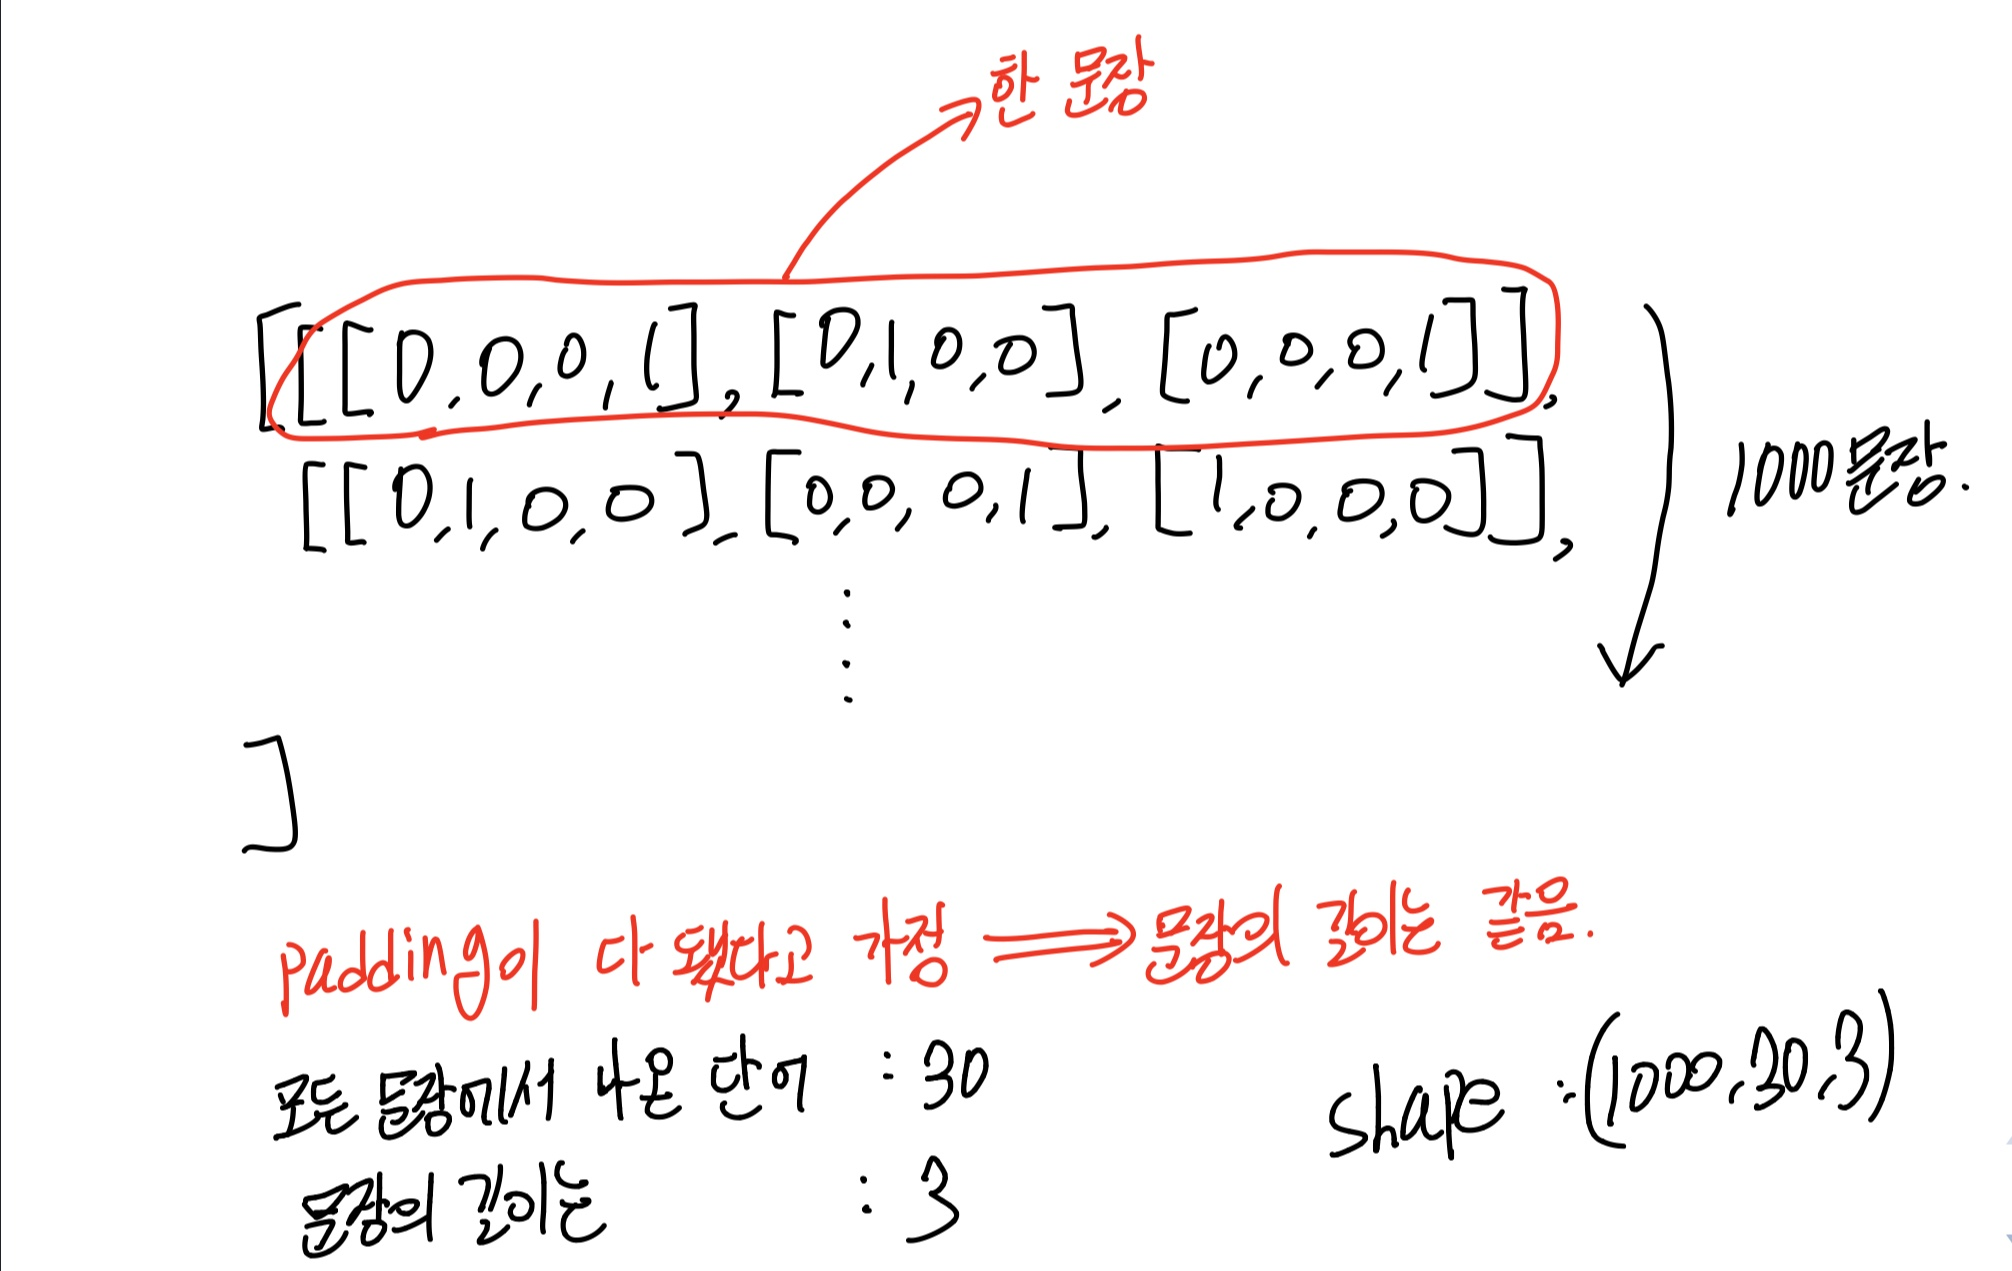 한 문장
[[[0,0,0,1],[0,1,0,0],[0,0,0,1]],
[[0,1,0,0],[0,0,0,1],[1,0,0,0]],
1000문장.
]
padding이 다 됐다고 가정 ⇒ 문장의 길이는 같음.
모든 문장에서 나온 단어 : 30
shape :(1000,30,3)
문장의 길이는 : 3